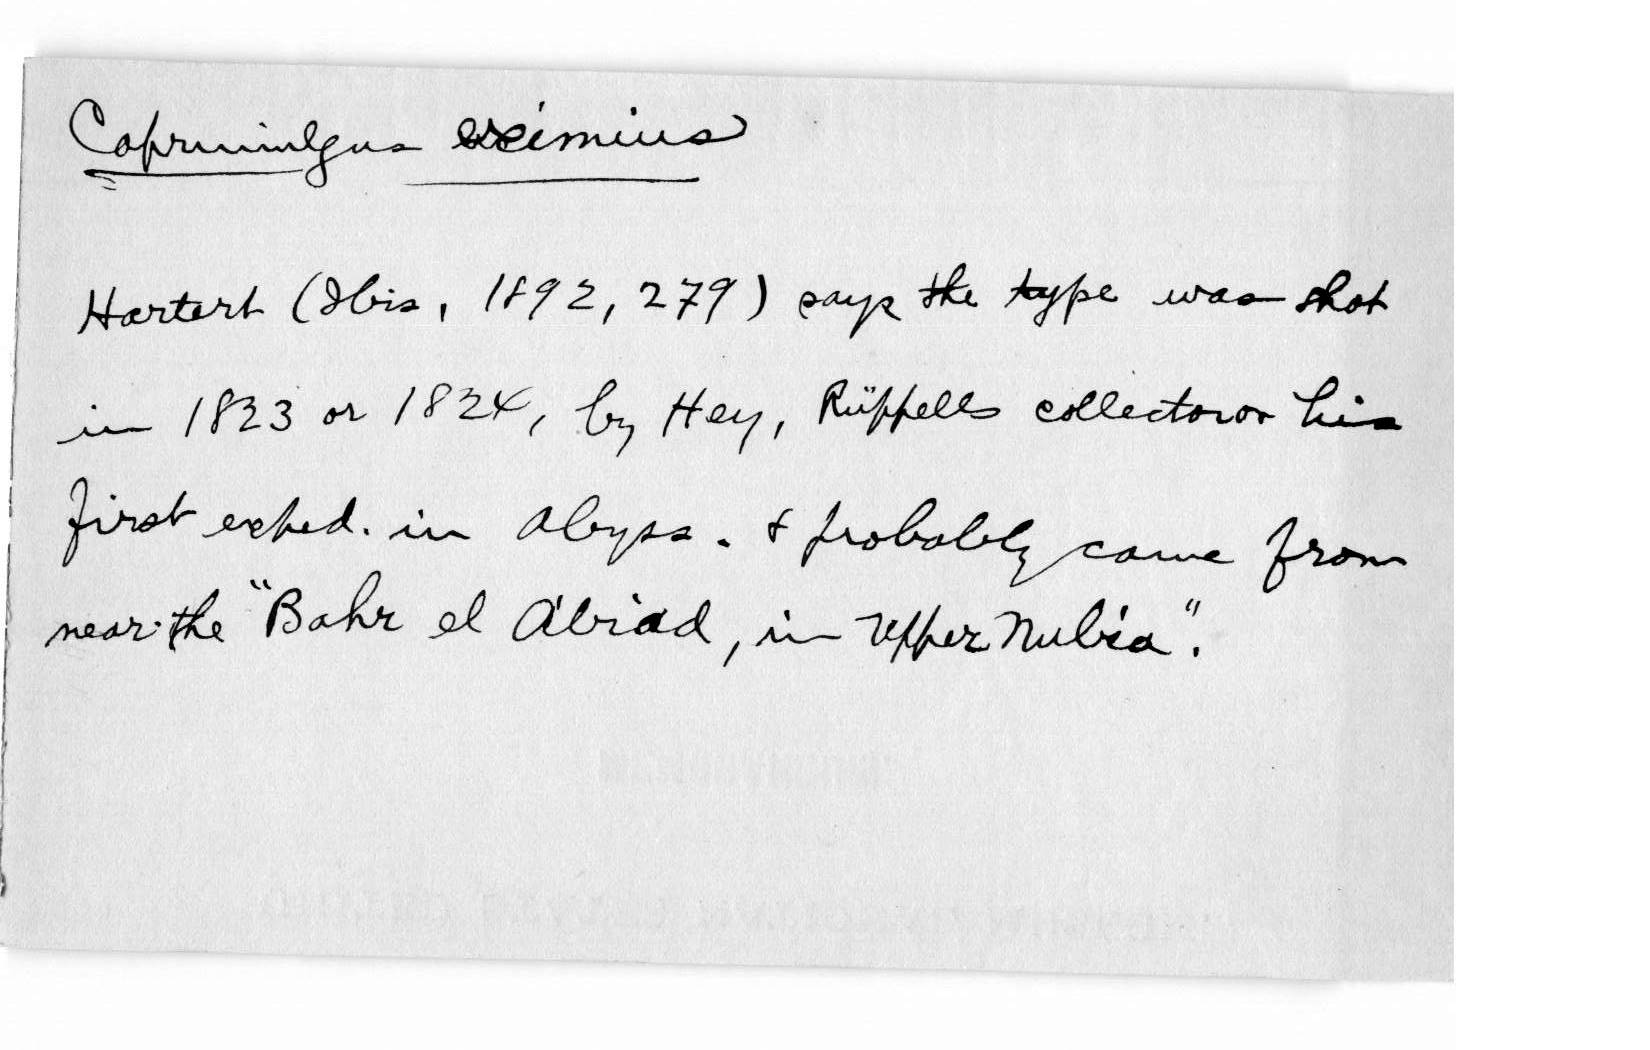 Caprimulgus eximius
Hartert (Ibis, 1892, 279) says the type was shot
in 1823 or 1824, by Hey, Rüppells collector on his
first exped. in Abyss. & probably came from
near the "Bahr el Abiad, in Upper Nubia".